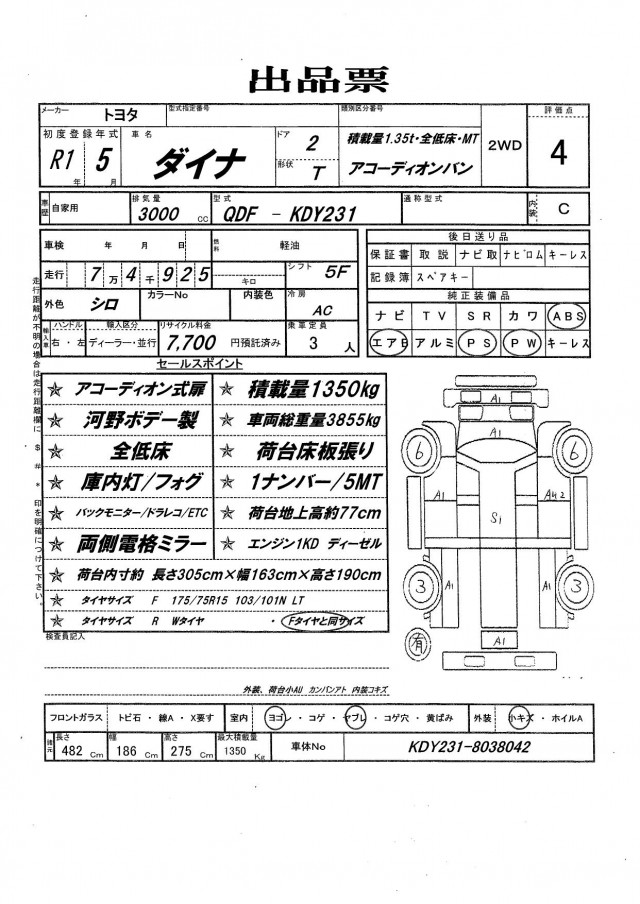 出品票
メーカー トヨタ 型式指定番号 類別区分番号 評価点
初度登録年式 車名 ドア 2 積載量1.35t・全低床・MT 2WD 4
R1年 5月 ダイナ 形状 T アコーディオンバン
車歴 自家用 排気量 3000 CC 型式 QDF - KDY231 通称型式 内装 C
車検 年 月 日 燃料 軽油 後日送り品
保証書 取説 ナビ取 ナビロム キーレス
走行 7万4千925 キロ シフト 5F 記録簿 スペアキー
外色 シロ カラーNo 内装色 冷房 AC 純正装備品
ナビ TV SR カワ ABS
輸入車 ハンドル 右・左 輸入区分 ディーラー・並行 リサイクル料金 7,700 円預託済み 乗車定員 3 人 エアB アルミ PS PW キーレス
走行距離が不明の場合は走行距離欄に $ # * 印を明確につけて下さい。
セールスポイント
アコーディオン式扉 積載量1350kg
河野ボデー製 車両総重量3855kg
全低床 荷台床板張り
庫内灯/フォグ 1ナンバー/5MT
バックモニター/ドラレコ/ETC 荷台地上高約77cm
両側電格ミラー エンジン1KD ディーゼル
荷台内寸約 長さ305cm×幅163cm×高さ190cm
タイヤサイズ F 175/75R15 103/101N LT
タイヤサイズ R Wタイヤ ・ Fタイヤと同サイズ
検査員記入
A1
A1
6 6
A1 AU2
S1
3 A1 A1 3
有 A1
外装、荷台小AU カンバンアト 内装コキズ
フロントガラス トビ石・線A・X要す 室内 ヨゴレ・コゲ・ヤブレ・コゲ穴・黄ばみ 外装 小キズ・ホイルA
諸元 長さ 482 Cm 幅 186 Cm 高さ 275 Cm 最大積載量 1350 Kg 車体No KDY231-8038042